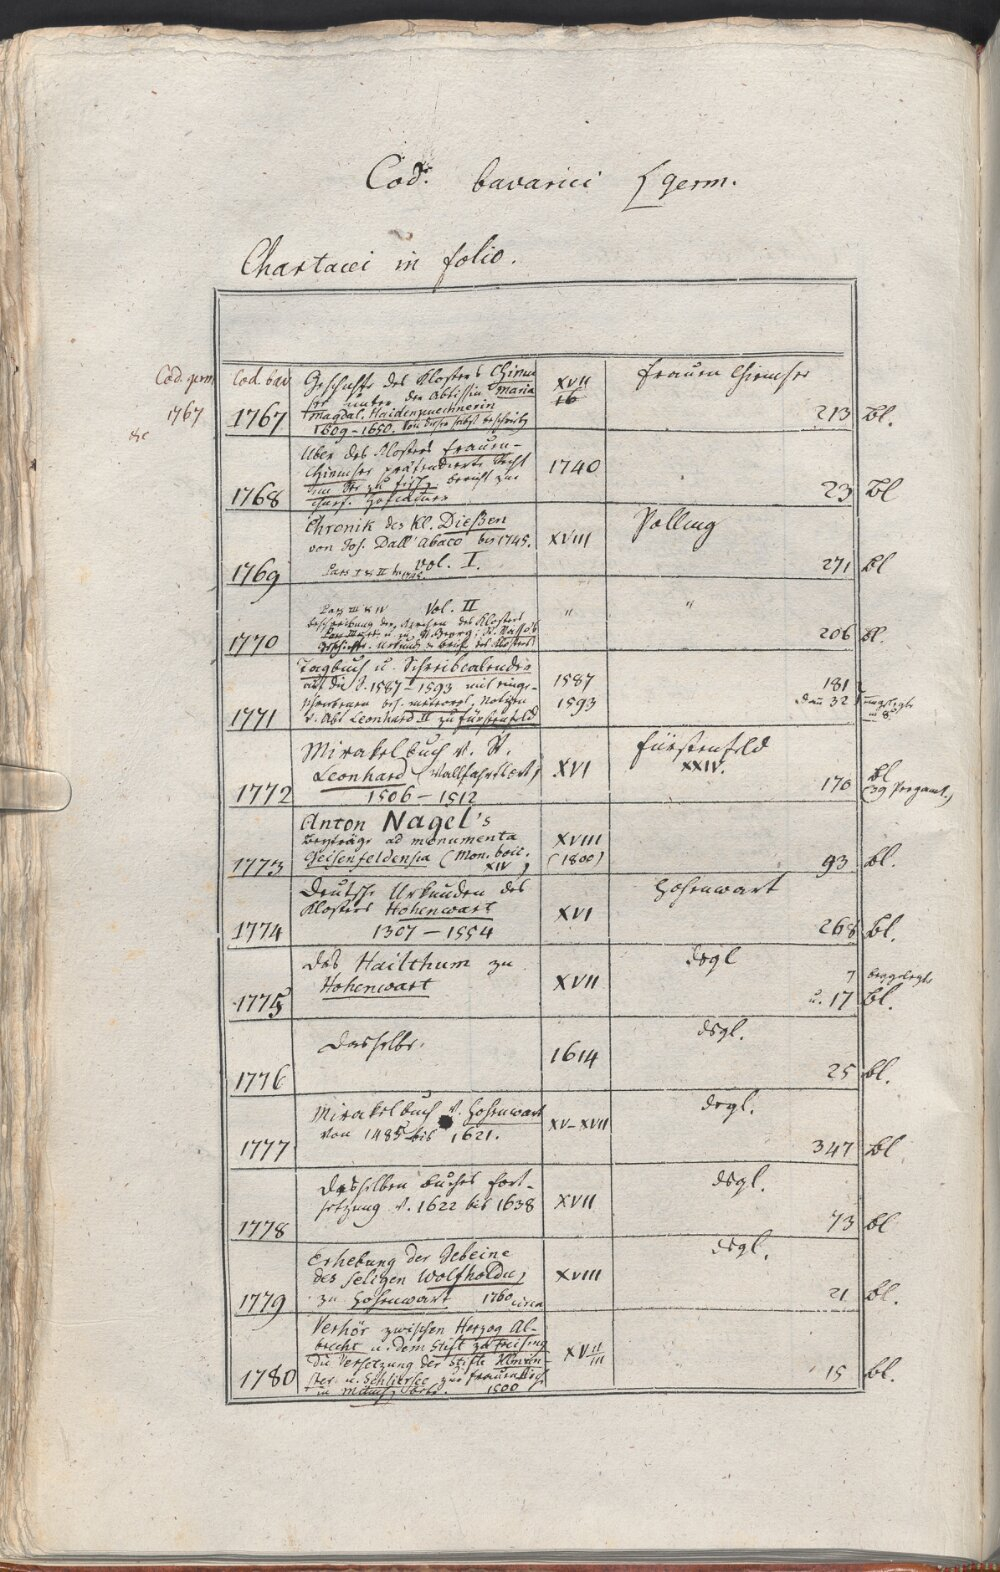 Cod. bavarici germ.
Chartacei in folio.
Cod. germ. 1767 &c
Cod. bav. 1767
Geschichte des Klosters Chiem
see unter der Abtissin Maria
Magdal. Haidenpuechnerin
1609-1650. Von dieser selbst beschrieben
XVII
16
Frauen Chiemsee
213 Bl.
1768
Uber des Klosters Frauen-
Chiemsee prätendierte Recht
im See zu fischen bericht zur
churf. Hofkamer
1740
23 Bl
1769
Chronik des Kl. Dießen
von Jos. Dall'Abaco bis 1745.
Pars I & II
vol. I.
XVIII
Polling
271 Bl
1770
Pars III & IV Vol. II
Beschreibung der Kirchen des Klosters
"
"
206 Bl.
1771
Tagbuch u. Schreibcalender
auf die J. 1587-1593 mit einge-
schriebenen bes. meteorol. Notizen
v. Abt Leonhard II zu Fürstenfeld
1587
1593
181
dann 32
1772
Mirakelbuch v. St.
Leonhard (Wallfahrtsort)
1506-1512
XVI
Fürstenfeld
XXIV.
170 Bl
(39 Pergamt.)
1773
Anton Nagel's
Beyträge ad monumenta
Geisenfeldensia (Mon. boic.
XIV)
XVIII
(1800)
93 Bl.
1774
Deutsche Urkunden des
Klosters Hohenwart
1307-1554
XVI
Hohenwart
268 Bl.
1775
Das Hailthum zu
Hohenwart
XVII
dsgl
7 beygelegte
u. 17 Bl.
1776
Dasselbe.
1614
dsgl.
25 Bl.
1777
Mirakelbuch v. Hohenwart
von 1485 bis 1621.
XV-XVII
dsgl.
347 Bl
1778
Desselben Buches Fort-
setzung v. 1622 bis 1638
XVII
dsgl.
73 Bl
1779
Erhebung der Gebeine
des seligen Wolfholdus
zu Hohenwart. 1760
XVIII
dsgl.
21 Bl.
1780
Verhör zwischen Herzog Al-
brecht u. dem Stift zu Freising
die Versetzung der Stifte Ilmün-
ster u. Schliersee zur Frauenkirche
in München betr. 1500
XV
15 Bl.